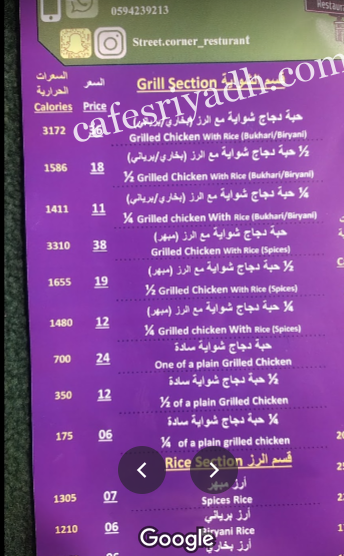 Restaura
0594239213
Street.corner_resturant
cafesriyadh.com
السعرات الحرارية السعر Grill Section قسم الشواية
Calories Price
حبة دجاج شواية مع الرز (بخاري/برياني)
3172 36 Grilled Chicken With Rice (Bukhari/Biryani)
½ حبة دجاج شواية مع الرز (بخاري/برياني)
1586 18 ½ Grilled Chicken With Rice (Bukhari/Biryani)
¼ حبة دجاج شواية مع الرز (بخاري/برياني)
1411 11 ¼ Grilled chicken With Rice (Bukhari/Biryani)
حبة دجاج شواية مع الرز (مبهر)
3310 38 Grilled Chicken With Rice (Spices)
½ حبة دجاج شواية مع الرز (مبهر)
1655 19 ½ Grilled Chicken With Rice (Spices)
¼ حبة دجاج شواية مع الرز (مبهر)
1480 12 ¼ Grilled chicken With Rice (Spices)
حبة دجاج شواية سادة
700 24 One of a plain Grilled Chicken
½ حبة دجاج شواية سادة
350 12 ½ of a plain Grilled Chicken
¼ حبة دجاج شواية سادة
175 06 ¼ of a plain grilled chicken
Rice Section قسم الرز
أرز مبهر
1305 07 Spices Rice
أرز برياني
1210 06 Biryani Rice
أرز بخاري
Google